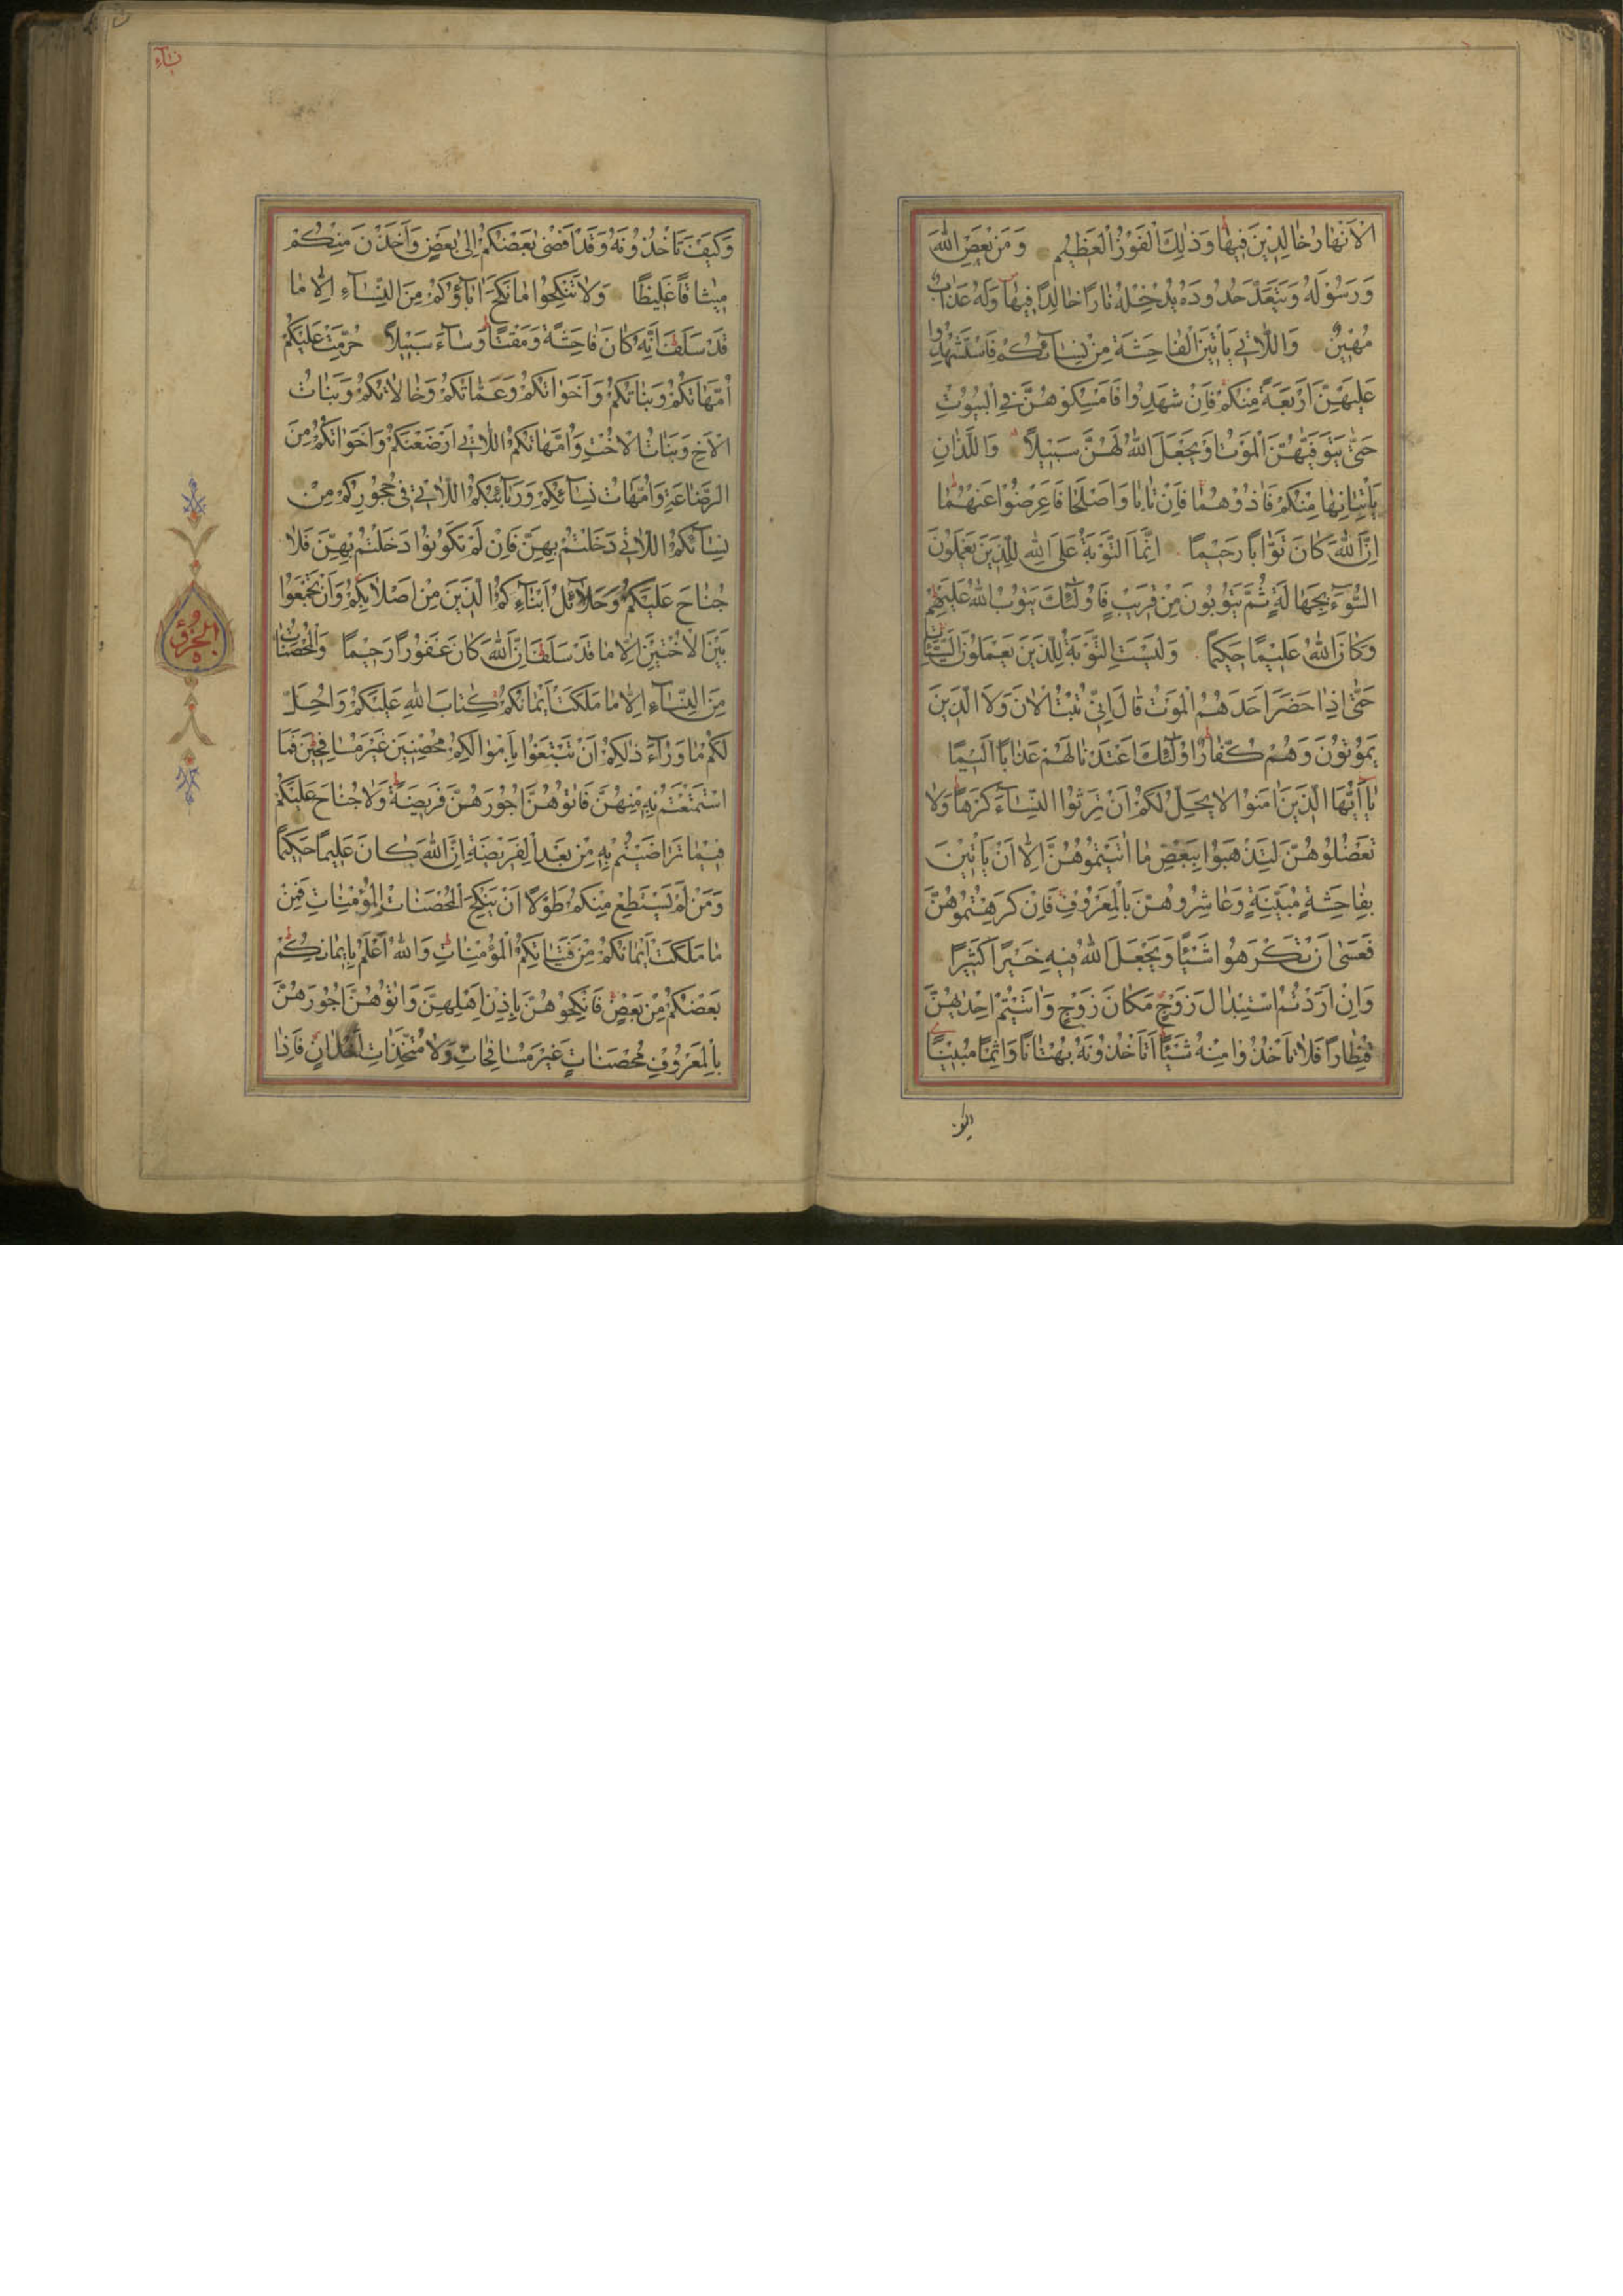 الْاَنْهَارُ خَالِدِينَ فِيهَا وَذٰلِكَ الْفَوْزُ الْعَظِيمُ وَمَنْ يَعْصِ اللّٰهَ
وَرَسُولَهُ وَيَتَعَدَّ حُدُودَهُ يُدْخِلْهُ نَارًا خَالِدًا فِيهَا وَلَهُ عَذَابٌ
مُهِينٌ وَاللَّاتِي يَأْتِينَ الْفَاحِشَةَ مِنْ نِسَائِكُمْ فَاسْتَشْهِدُوا
عَلَيْهِنَّ اَرْبَعَةً مِنْكُمْ فَاِنْ شَهِدُوا فَاَمْسِكُوهُنَّ فِي الْبُيُوتِ
حَتّٰى يَتَوَفّٰيهُنَّ الْمَوْتُ اَوْ يَجْعَلَ اللّٰهُ لَهُنَّ سَبِيلًا وَاللَّذَانِ
يَأْتِيَانِهَا مِنْكُمْ فَاٰذُوهُمَا فَاِنْ تَابَا وَاَصْلَحَا فَاَعْرِضُوا عَنْهُمَا
اِنَّ اللّٰهَ كَانَ تَوَّابًا رَحِيمًا اِنَّمَا التَّوْبَةُ عَلَى اللّٰهِ لِلَّذِينَ يَعْمَلُونَ
السُّوٓءَ بِجَهَالَةٍ ثُمَّ يَتُوبُونَ مِنْ قَرِيبٍ فَاُولٰٓئِكَ يَتُوبُ اللّٰهُ عَلَيْهِمْ
وَكَانَ اللّٰهُ عَلِيمًا حَكِيمًا وَلَيْسَتِ التَّوْبَةُ لِلَّذِينَ يَعْمَلُونَ السَّيِّئَاتِ
حَتّٰى اِذَا حَضَرَ اَحَدَهُمُ الْمَوْتُ قَالَ اِنِّي تُبْتُ الْاٰنَ وَلَا الَّذِينَ
يَمُوتُونَ وَهُمْ كُفَّارٌ اُولٰٓئِكَ اَعْتَدْنَا لَهُمْ عَذَابًا اَلِيمًا
يَا اَيُّهَا الَّذِينَ اٰمَنُوا لَا يَحِلُّ لَكُمْ اَنْ تَرِثُوا النِّسَآءَ كَرْهًا وَلَا
تَعْضُلُوهُنَّ لِتَذْهَبُوا بِبَعْضِ مَا اٰتَيْتُمُوهُنَّ اِلَّا اَنْ يَأْتِينَ
بِفَاحِشَةٍ مُبَيِّنَةٍ وَعَاشِرُوهُنَّ بِالْمَعْرُوفِ فَاِنْ كَرِهْتُمُوهُنَّ
فَعَسٰى اَنْ تَكْرَهُوا شَيْئًا وَيَجْعَلَ اللّٰهُ فِيهِ خَيْرًا كَثِيرًا
وَاِنْ اَرَدْتُمُ اسْتِبْدَالَ زَوْجٍ مَكَانَ زَوْجٍ وَاٰتَيْتُمْ اِحْدٰيهُنَّ
قِنْطَارًا فَلَا تَأْخُذُوا مِنْهُ شَيْئًا اَتَأْخُذُونَهُ بُهْتَانًا وَاِثْمًا مُبِينًا
نساء
وَكَيْفَ تَأْخُذُونَهُ وَقَدْ اَفْضٰى بَعْضُكُمْ اِلٰى بَعْضٍ وَاَخَذْنَ مِنْكُمْ
مِيثَاقًا غَلِيظًا وَلَا تَنْكِحُوا مَا نَكَحَ اٰبَآؤُكُمْ مِنَ النِّسَآءِ اِلَّا مَا
قَدْ سَلَفَ اِنَّهُ كَانَ فَاحِشَةً وَمَقْتًا وَسَآءَ سَبِيلًا حُرِّمَتْ عَلَيْكُمْ
اُمَّهَاتُكُمْ وَبَنَاتُكُمْ وَاَخَوَاتُكُمْ وَعَمَّاتُكُمْ وَخَالَاتُكُمْ وَبَنَاتُ
الْاَخِ وَبَنَاتُ الْاُخْتِ وَاُمَّهَاتُكُمُ اللَّاتِي اَرْضَعْنَكُمْ وَاَخَوَاتُكُمْ مِنَ
الرَّضَاعَةِ وَاُمَّهَاتُ نِسَآئِكُمْ وَرَبَآئِبُكُمُ اللَّاتِي فِي حُجُورِكُمْ مِنْ
نِسَآئِكُمُ اللَّاتِي دَخَلْتُمْ بِهِنَّ فَاِنْ لَمْ تَكُونُوا دَخَلْتُمْ بِهِنَّ فَلَا
جُنَاحَ عَلَيْكُمْ وَحَلَآئِلُ اَبْنَآئِكُمُ الَّذِينَ مِنْ اَصْلَابِكُمْ وَاَنْ تَجْمَعُوا
بَيْنَ الْاُخْتَيْنِ اِلَّا مَا قَدْ سَلَفَ اِنَّ اللّٰهَ كَانَ غَفُورًا رَحِيمًا وَالْمُحْصَنَاتُ
مِنَ النِّسَآءِ اِلَّا مَا مَلَكَتْ اَيْمَانُكُمْ كِتَابَ اللّٰهِ عَلَيْكُمْ وَاُحِلَّ
لَكُمْ مَا وَرَآءَ ذٰلِكُمْ اَنْ تَبْتَغُوا بِاَمْوَالِكُمْ مُحْصِنِينَ غَيْرَ مُسَافِحِينَ فَمَا
اسْتَمْتَعْتُمْ بِهِ مِنْهُنَّ فَاٰتُوهُنَّ اُجُورَهُنَّ فَرِيضَةً وَلَا جُنَاحَ عَلَيْكُمْ
فِيمَا تَرَاضَيْتُمْ بِهِ مِنْ بَعْدِ الْفَرِيضَةِ اِنَّ اللّٰهَ كَانَ عَلِيمًا حَكِيمًا
وَمَنْ لَمْ يَسْتَطِعْ مِنْكُمْ طَوْلًا اَنْ يَنْكِحَ الْمُحْصَنَاتِ الْمُؤْمِنَاتِ فَمِنْ
مَا مَلَكَتْ اَيْمَانُكُمْ مِنْ فَتَيَاتِكُمُ الْمُؤْمِنَاتِ وَاللّٰهُ اَعْلَمُ بِاِيمَانِكُمْ
بَعْضُكُمْ مِنْ بَعْضٍ فَانْكِحُوهُنَّ بِاِذْنِ اَهْلِهِنَّ وَاٰتُوهُنَّ اُجُورَهُنَّ
بِالْمَعْرُوفِ مُحْصَنَاتٍ غَيْرَ مُسَافِحَاتٍ وَلَا مُتَّخِذَاتِ اَخْدَانٍ فَاِذَا
الجزؤ